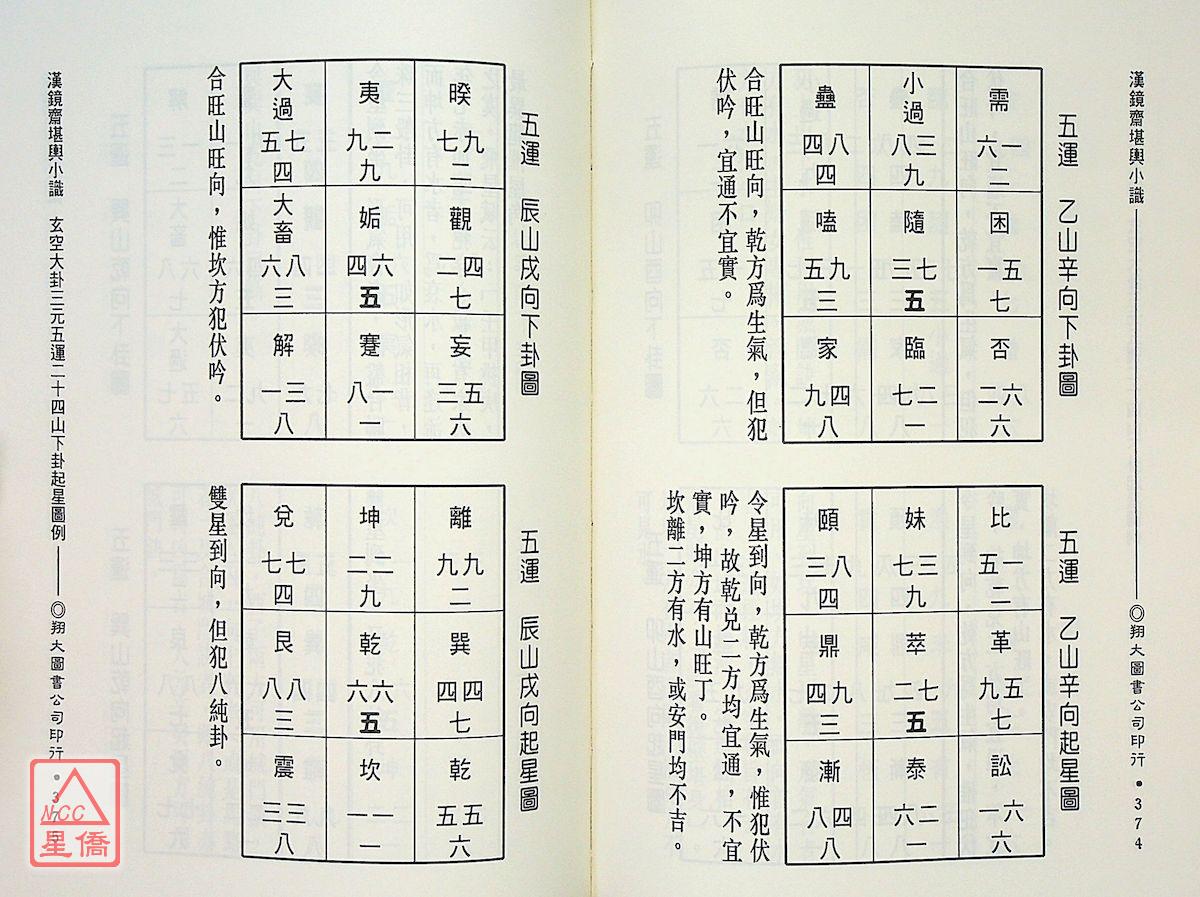 漢鏡齋堪輿小識
◎翔大圖書公司印行•374
五運 乙山辛向下卦圖
蠱 小過 需
四八 八三 六一
四 九 二
嗑 隨 困
五九 三七 一五
三 五 七
家 臨 否
九四 七二 二六
八 一 六
合旺山旺向，乾方爲生氣，但犯
伏吟，宜通不宜實。
五運 乙山辛向起星圖
頤 妹 比
三八 七三 五一
四 九 二
鼎 萃 革
四九 二七 九五
三 五 七
漸 泰 訟
八四 六二 一六
八 一 六
令星到向，乾方爲生氣，惟犯伏
吟，故乾兌二方均宜通，不宜
實，坤方有山旺丁。
坎離二方有水，或安門均不吉。
五運 辰山戌向下卦圖
大過 夷 睽
五七 九二 七九
四 九 二
大畜 姤 觀
六八 四六 二四
三 五 七
解 蹇 妄
一三 八一 三五
八 一 六
合旺山旺向，惟坎方犯伏吟。
五運 辰山戌向起星圖
兌 坤 離
七七 二二 九九
四 九 二
艮 乾 巽
八八 六六 四四
三 五 七
震 坎 乾
三三 一一 五五
八 一 六
雙星到向，但犯八純卦。
漢鏡齋堪輿小識 玄空大卦三元五運二十四山下卦起星圖例
◎翔大圖書公司印行•375
NCC
星僑